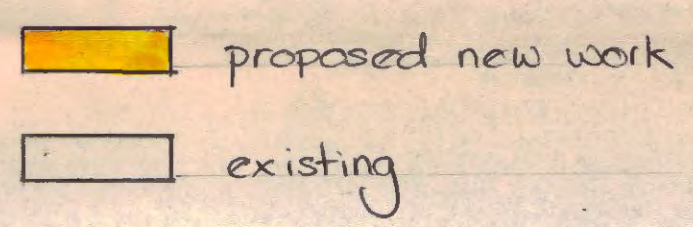 proposed new work
existing